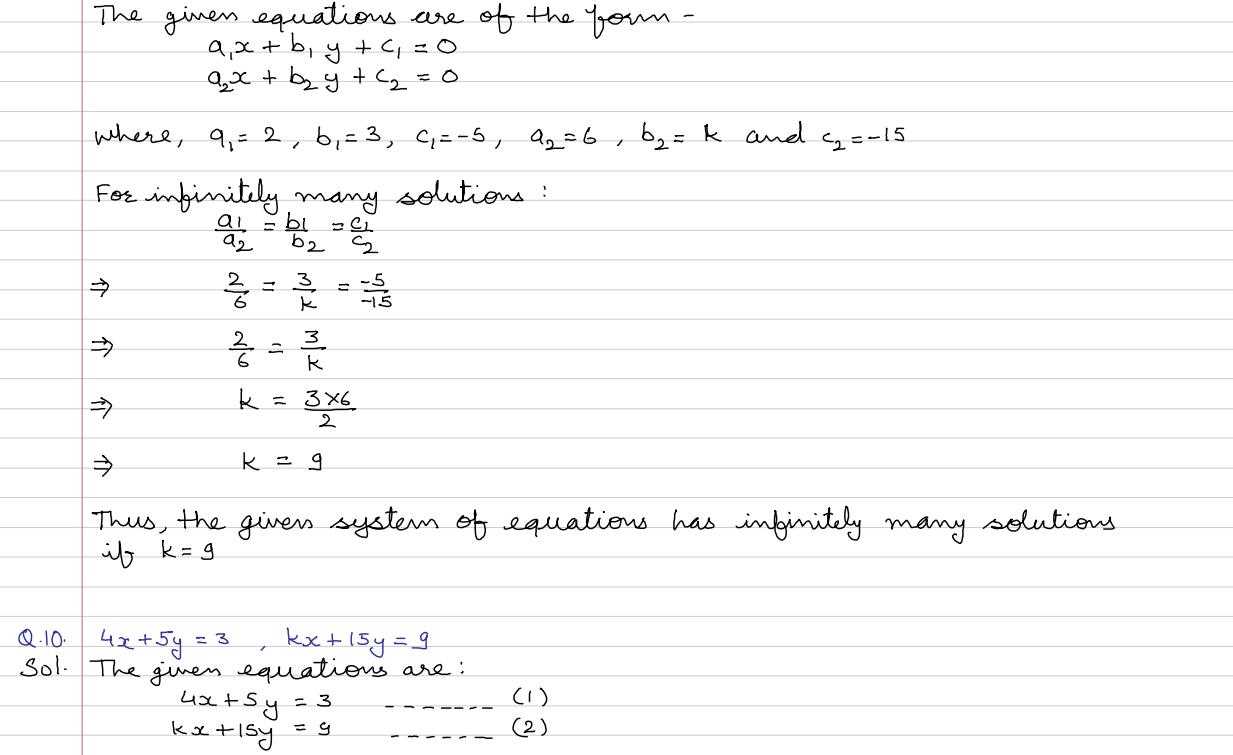 The given equations are of the form -
a₁x + b₁ y + c₁ = 0
a₂x + b₂ y + c₂ = 0
where, a₁ = 2 , b₁ = 3, c₁ = -5, a₂ = 6 , b₂ = k and c₂ = -15
For infinitely many solutions :
a1/a2 = b1/b2 = c1/c2
⇒ 2/6 = 3/k = -5/-15
⇒ 2/6 = 3/k
⇒ k = 3×6/2
⇒ k = 9
Thus, the given system of equations has infinitely many solutions
if k = 9
Q.10. 4x + 5y = 3 , kx + 15y = 9
Sol. The given equations are :
4x + 5y = 3 ------- (1)
kx + 15y = 9 ------ (2)